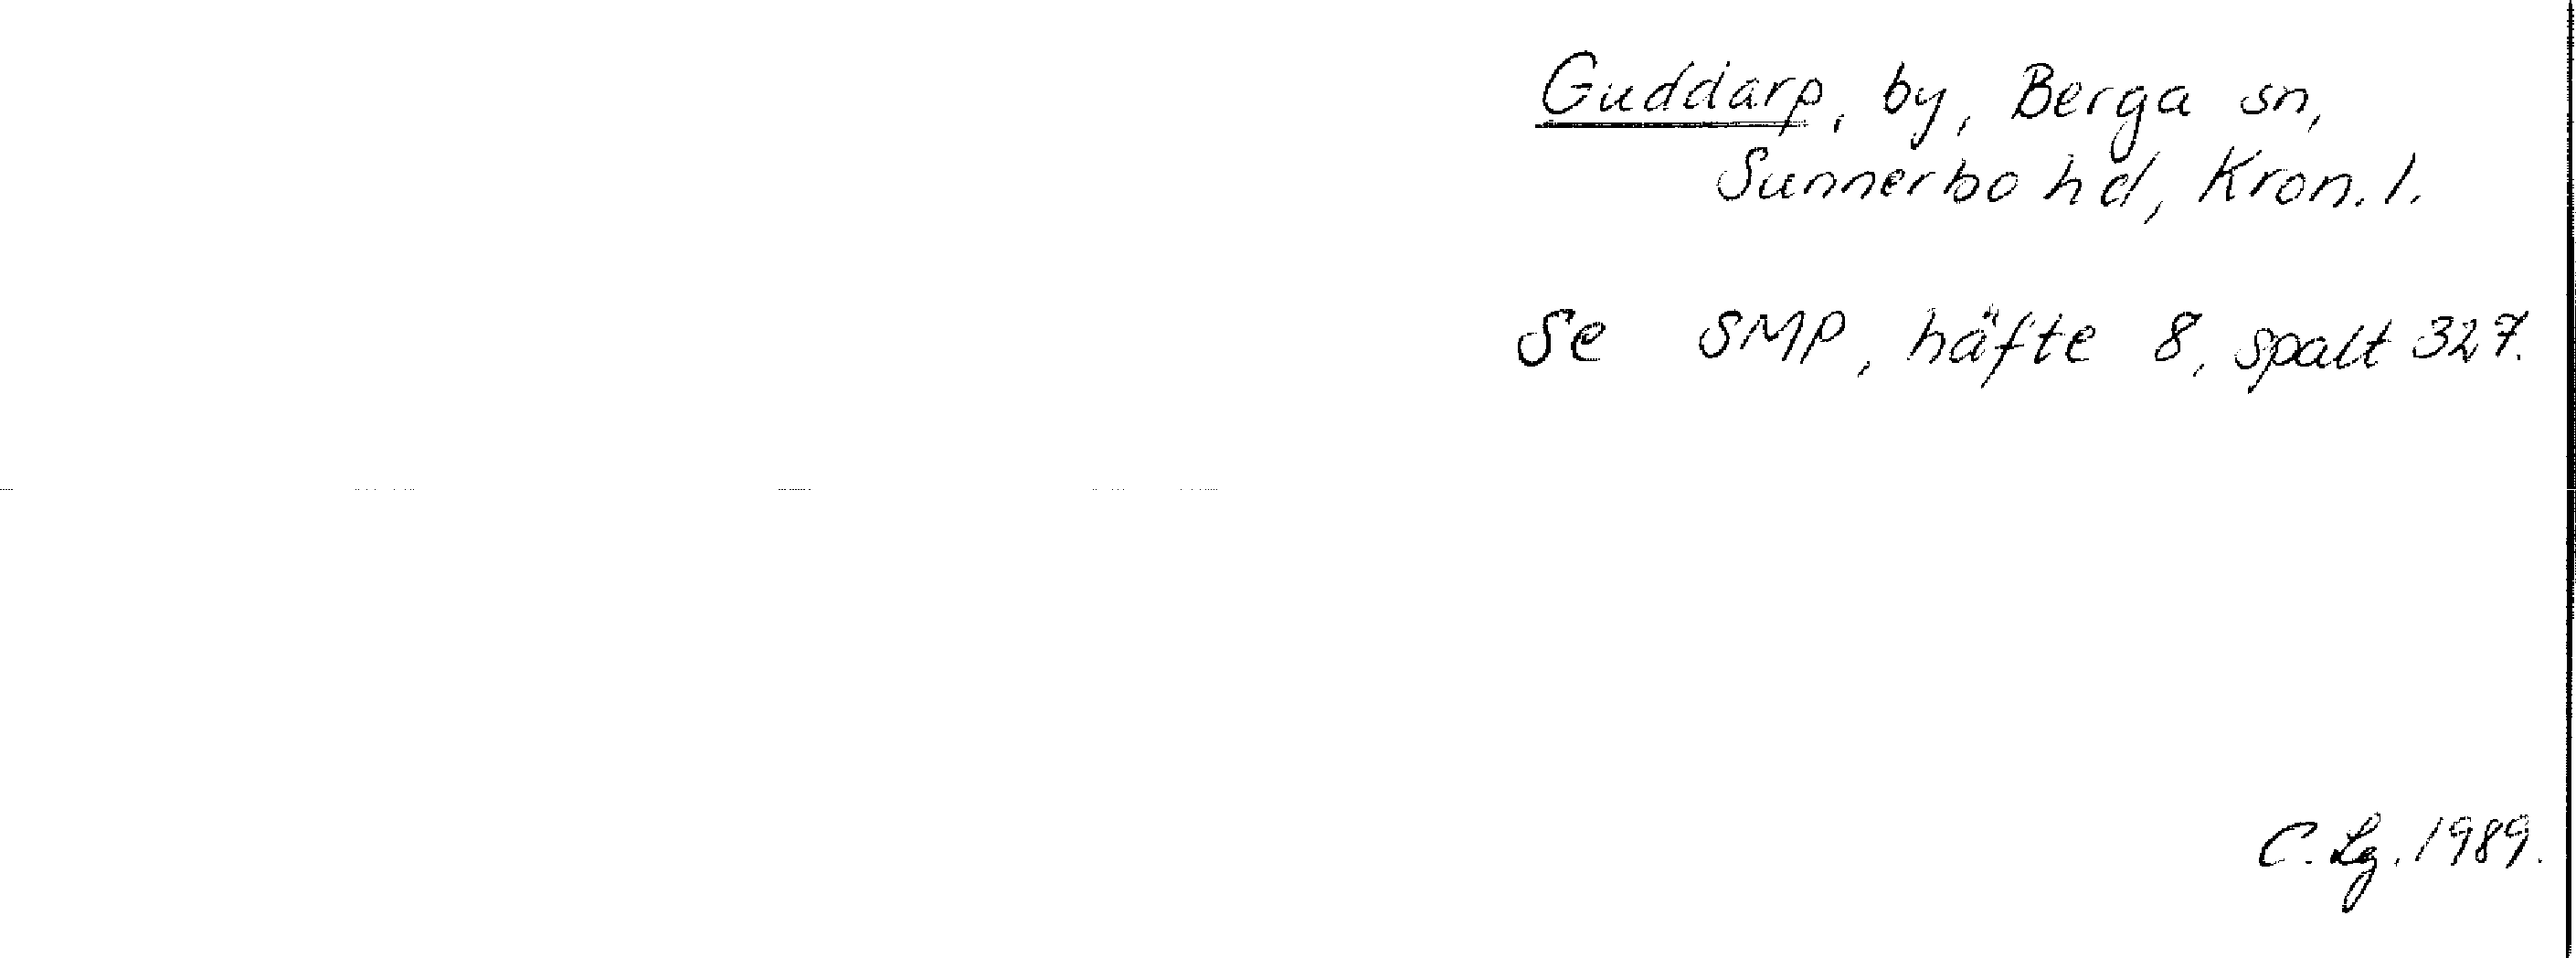 Guddarp, by, Berga sn,
Sunnerbo hd, Kron. l.
Se SMP, häfte 8, spalt 327.
C. Lg. 1989.